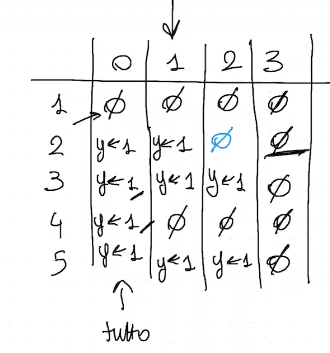 0 1 2 3
1 ∅ ∅ ∅ ∅
2 y←1 y←1 ∅ ∅
3 y←1 y←1 y←1 ∅
4 y←1 ∅ ∅ ∅
5 y←1 y←1 y←1 ∅
tutto